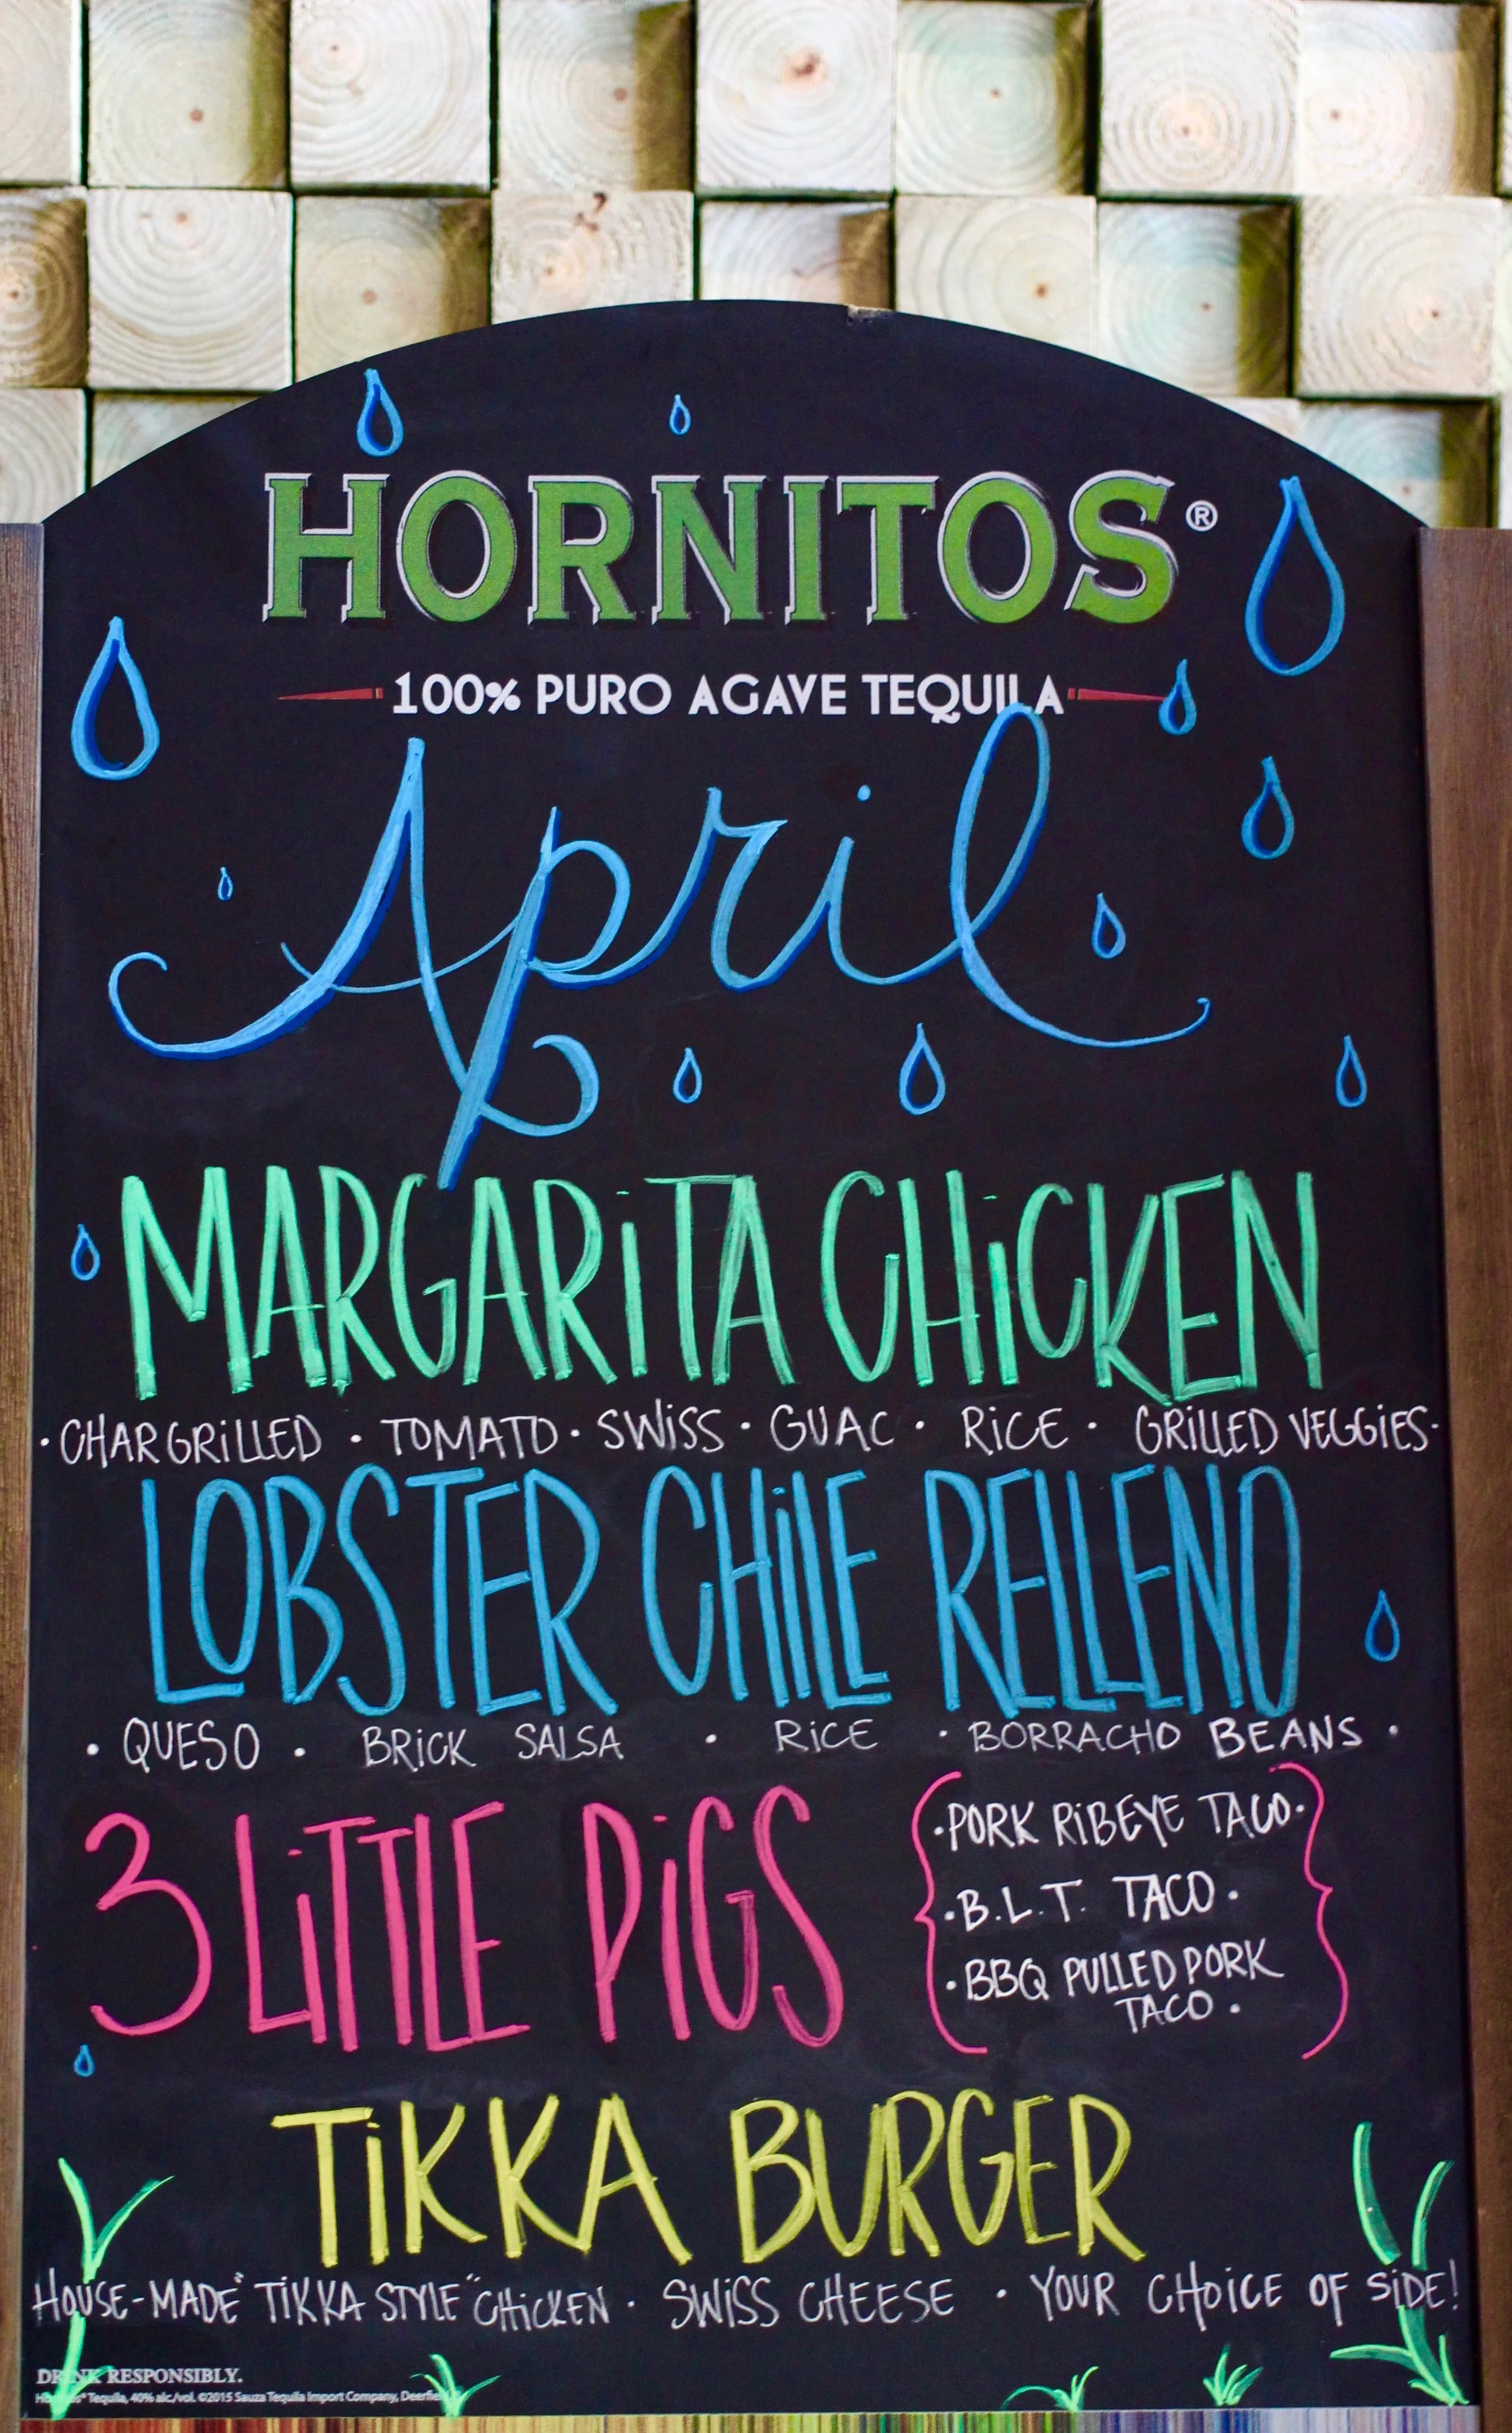 HORNITOS®
100% PURO AGAVE TEQUILA
April
MARGARiTA CHiCKEN
· CHARGRiLLED · TOMATO · SWiSS · GUAC · RiCE · GRiLLED VEGGiES ·
LOBSTER CHiLE RELLENO
· QUESO · BRiCK SALSA · RiCE · BORRACHO BEANS ·
3 LiTTLE PiGS
· PORK RiBEYE TACO ·
· B.L.T. TACO ·
· BBQ PULLED PORK
TACO ·
TiKKA BURGER
HOUSE-MADE "TiKKA STYLE" CHiCKEN · SWiSS CHEESE · YOUR CHOiCE OF SiDE!
DRINK RESPONSIBLY.
Hornitos® Tequila, 40% alc./vol. ©2015 Sauza Tequila Import Company,